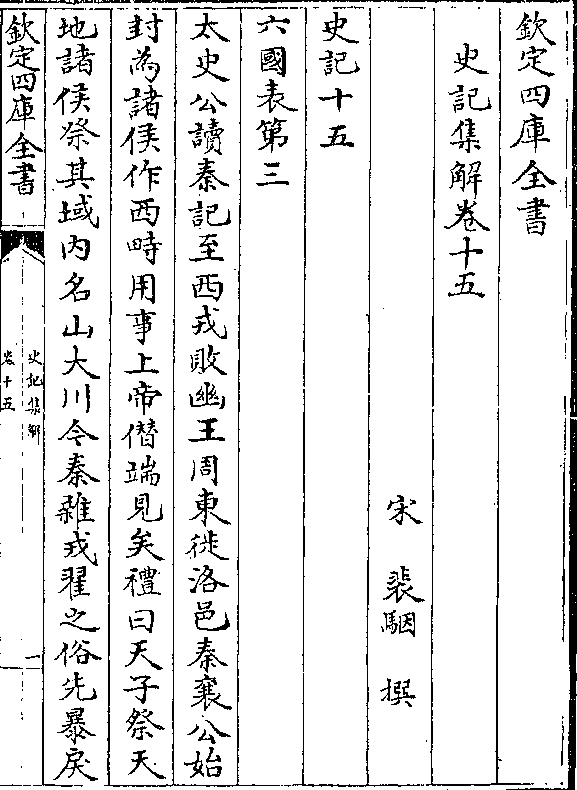 欽定四庫全書
史記集解卷十五
宋　裴駰　撰
史記十五
六國表第三
太史公讀秦記至西戎敗幽王周東徙洛邑秦襄公始
封為諸侯作西畤用事上帝僭端見矣禮曰天子祭天
地諸侯祭其域内名山大川今秦雜戎翟之俗先暴戾
欽定四庫全書
史記集解
卷十五
一